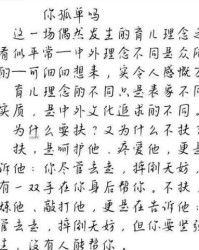 你孤单吗
这一场偶然发生的育儿理念之
看似平常—中外理念不同是众所
的—可细细想来，实令人感慨万
育儿理念的不同只是表象不同
实质，是中外文化追求的不同。
为什么要扶？又为什么不扶？
扶，是呵护他、疼爱他，更是
诉他：你尽管去走，摔倒无妨，
有一双手在你身后帮你。不扶，
炼他、敲打他，更是在告诉他：
管去走，摔倒无妨，但你要坚
过，没有人能帮你。